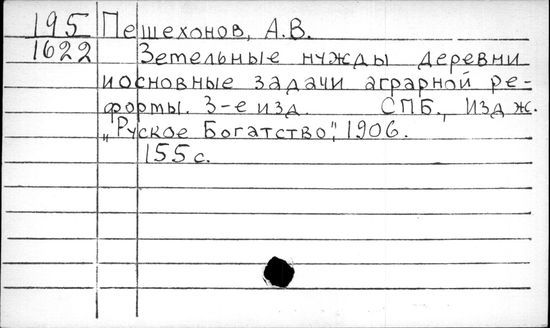 195 Пешехонов, А.В.
1622 Зетельные нужды деревни
иосновные задачи аграрной ре-
форты. 3-е изд. СПБ., Изд ж.
„Руское Богатство", 1906.
155 с.